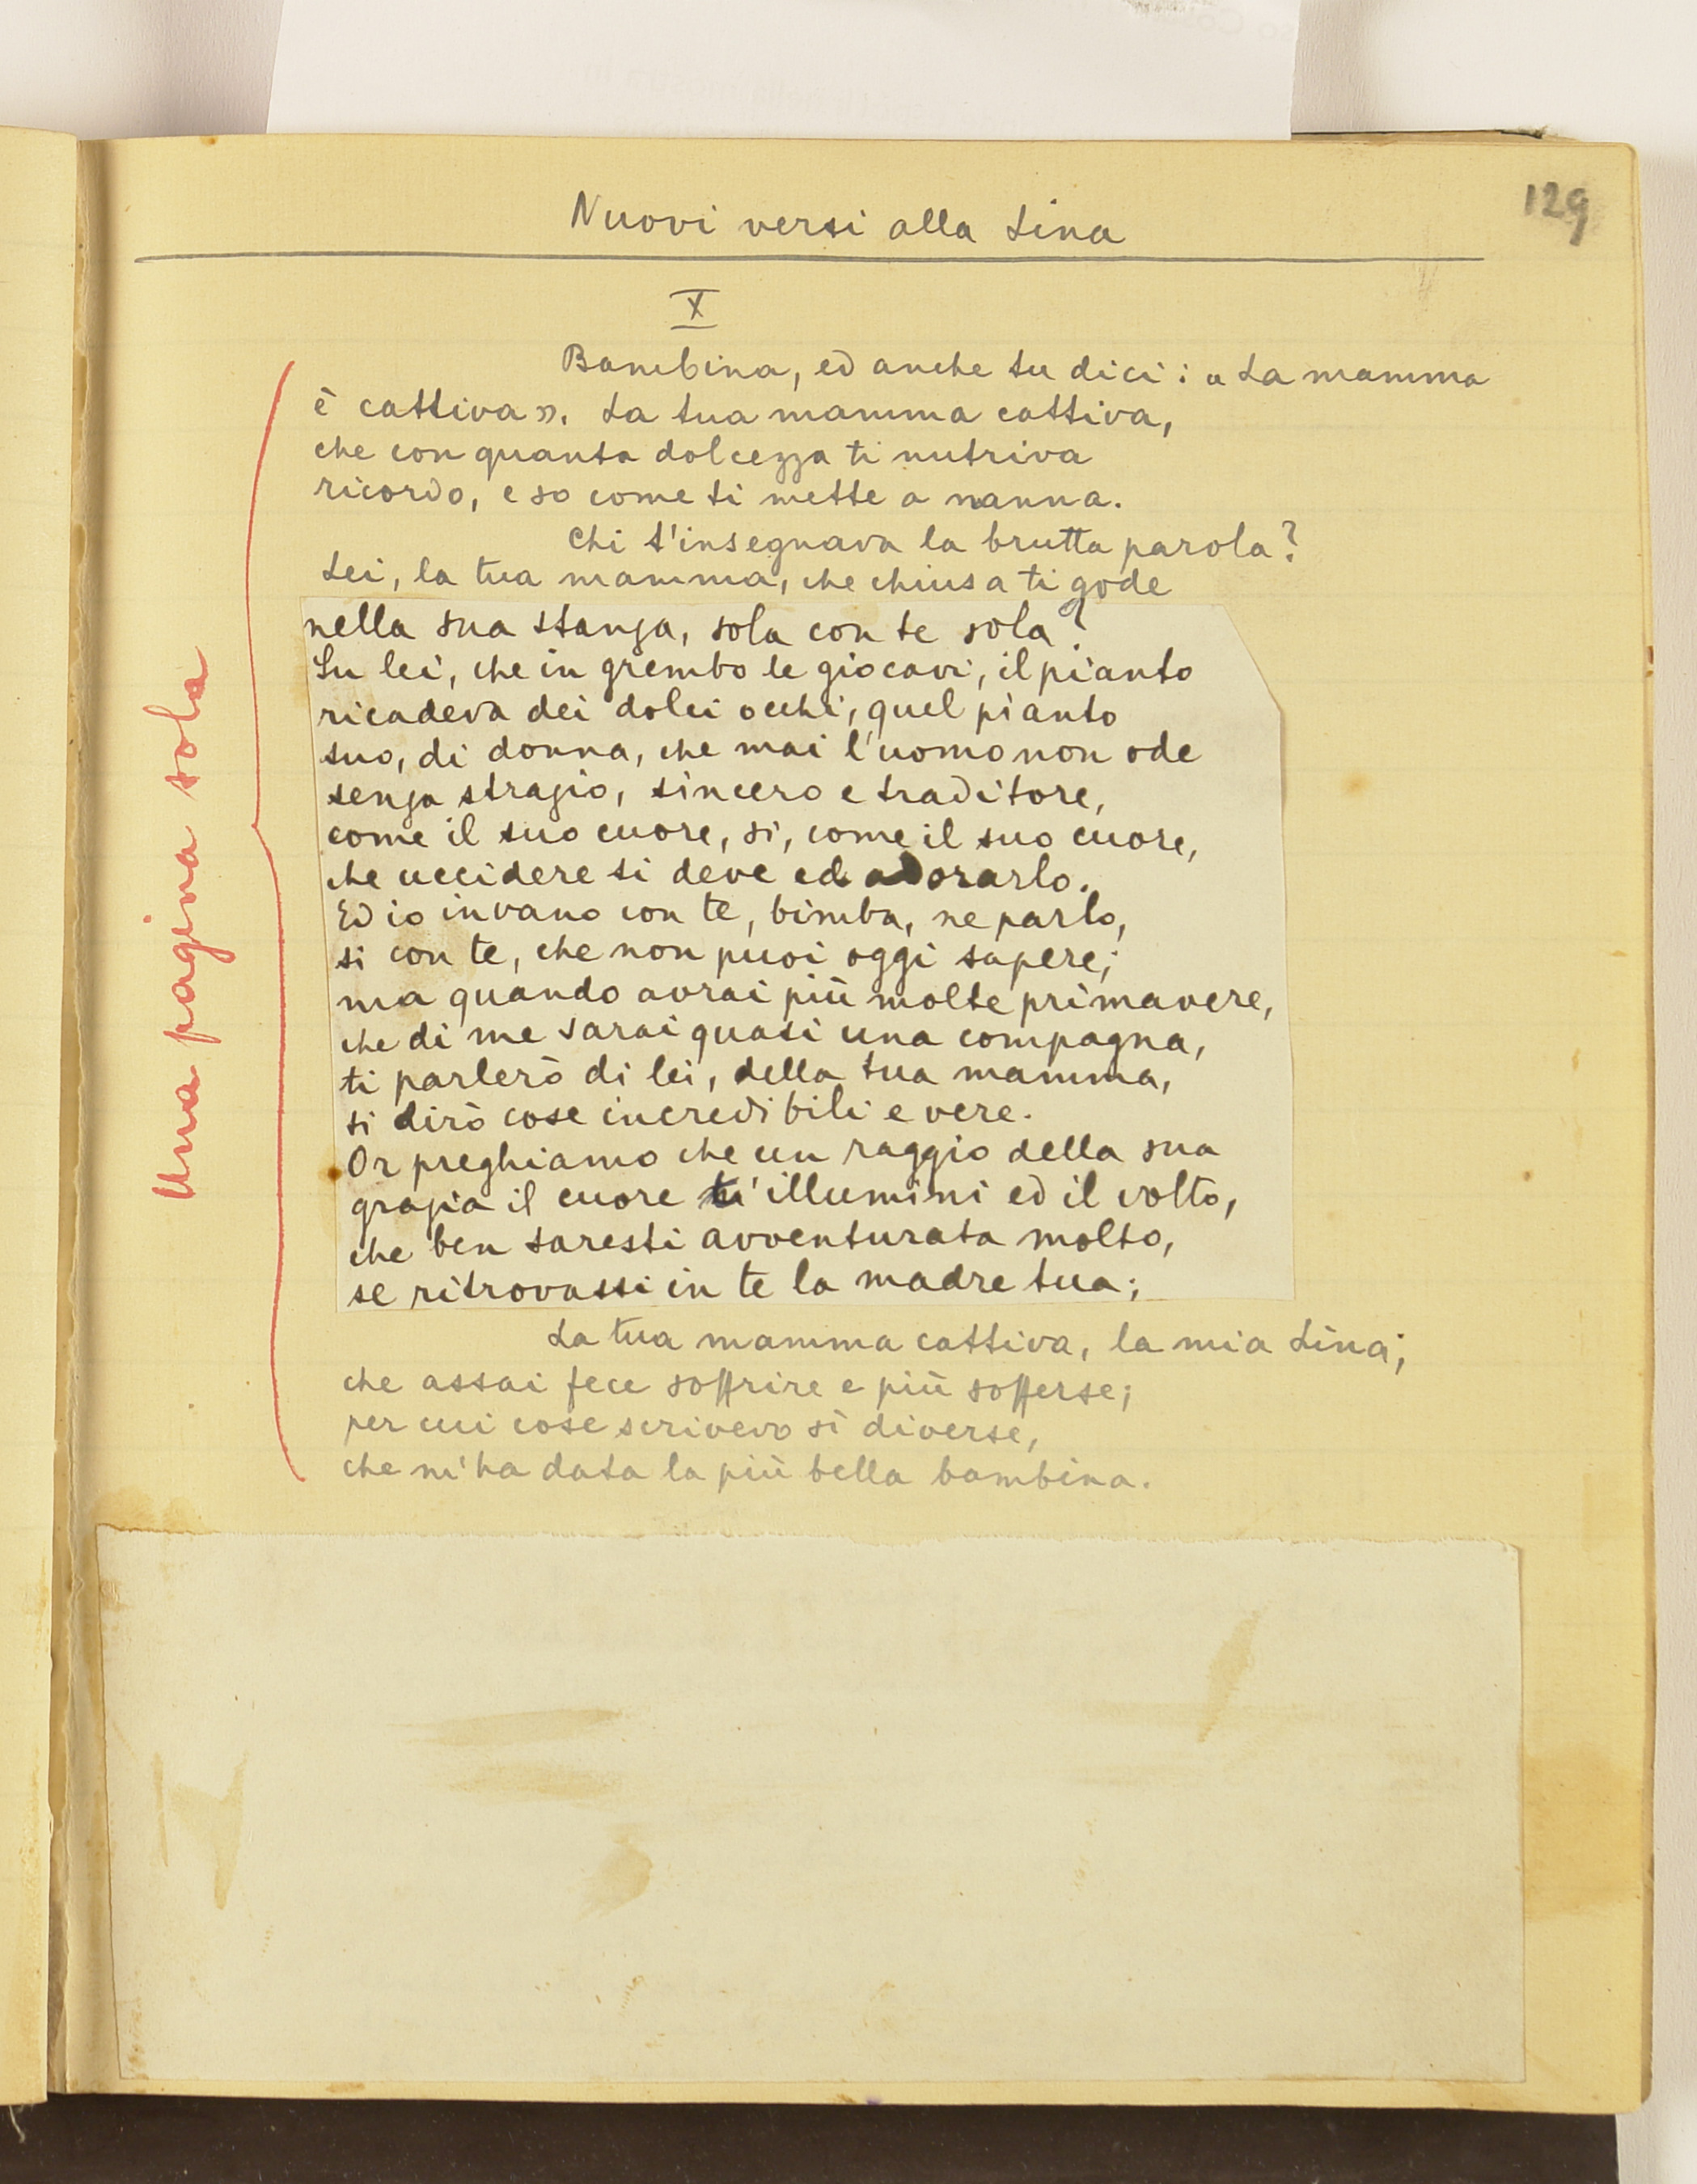 129
Nuovi versi alla Lina
X
Bambina, ed anche tu dici: « La mamma
è cattiva ». La tua mamma cattiva,
che con quanta dolcezza ti nutriva
ricordo, e so come ti mette a nanna.
Chi t'insegnava la brutta parola?
Lei, la tua mamma, che chiusa ti gode
nella sua stanza, sola con te sola?
Su lei, che in grembo le giocavi, il pianto
ricadeva dei dolci occhi, quel pianto
suo, di donna, che mai l'uomo non ode
senza strazio, sincero e traditore,
come il suo cuore, sì, come il suo cuore,
che uccidere si deve ed adorarlo.
Ed io invano con te, bimba, ne parlo,
sì con te, che non puoi oggi sapere;
ma quando avrai più molte primavere,
che di me sarai quasi una compagna,
ti parlerò di lei, della tua mamma,
ti dirò cose incredibili e vere.
Or preghiamo che un raggio della sua
grazia il cuore t'illumini ed il volto,
che ben saresti avventurata molto,
se ritrovassi in te la madre tua;
La tua mamma cattiva, la mia Lina;
che assai fece soffrire e più sofferse;
per cui cose scrivevo sì diverse,
che m'ha data la più bella bambina.
Una pagina sola